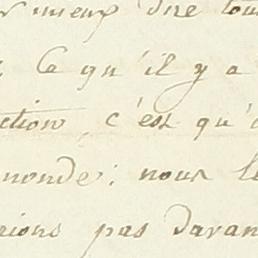 mieux dire tou
Ce qu'il y a
ction, c'est qu'
monde; nous le
rions pas davan